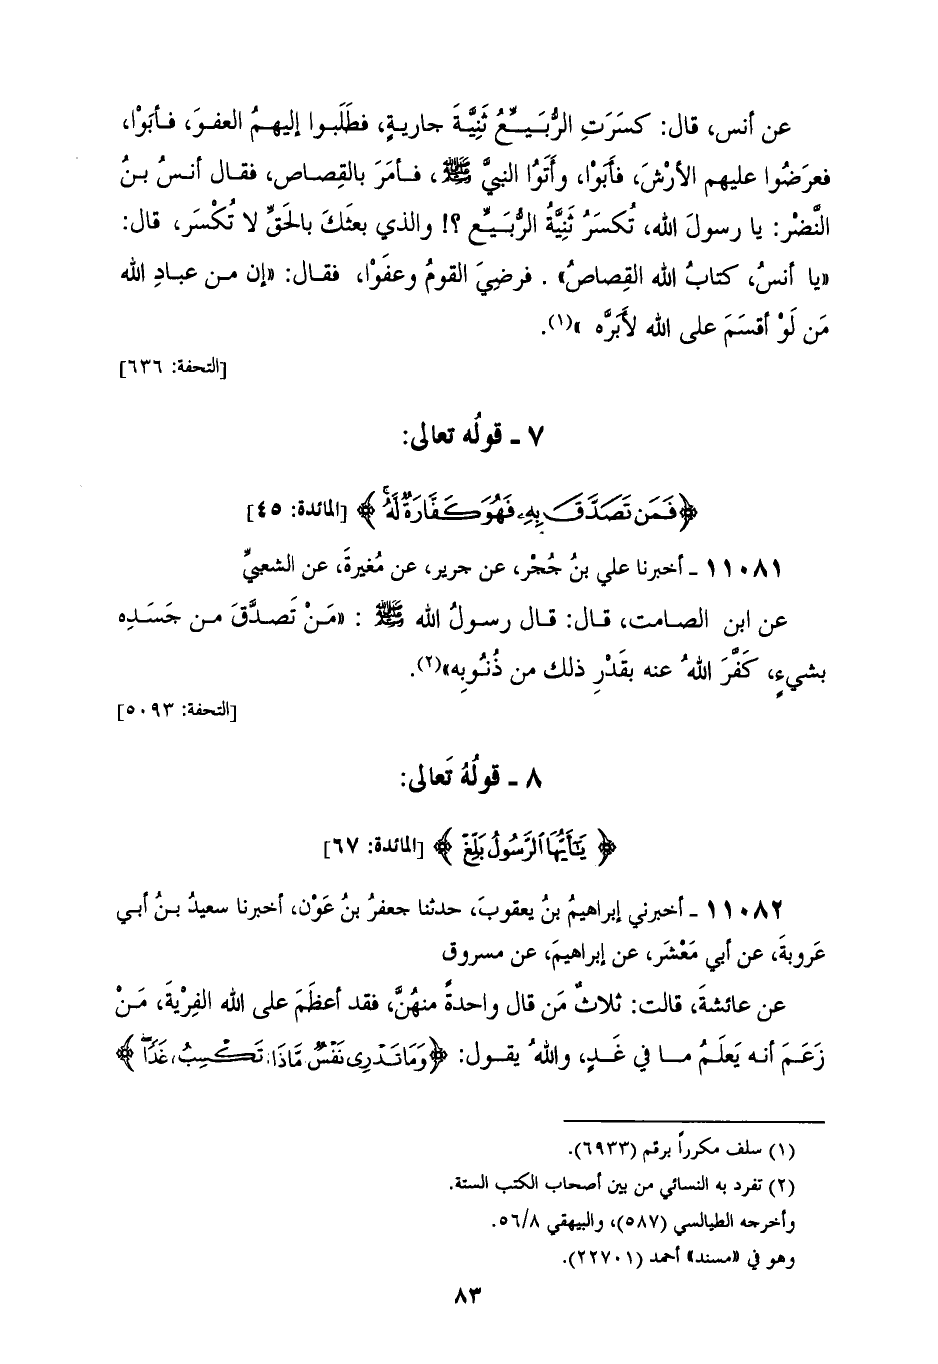 عن أنس، قال: كسَرَتِ الرُّبَيِّعُ ثَنِيَّةَ جاريةٍ، فطَلَبوا إليهمُ العفوَ، فأبَوْا،
فعرَضُوا عليهم الأرْشَ، فأبَوْا، وأتَوُا النبيَّ ﷺ، فأمَرَ بالقِصاص، فقال أنسُ بنُ
النَّضْر: يا رسولَ الله، تُكسَرُ ثَنِيَّةُ الرُّبَيِّعِ ؟! والذي بعثَكَ بالحَقِّ لا تُكْسَر، قال:
«يا أنسُ، كتابُ الله القِصاصُ» . فرضِيَ القومُ وعفَوْا، فقال: «إن من عبادِ الله
مَن لَوْ أقسَمَ على الله لأبَرَّه »(١).
[التحفة: ٦٣٦]
٧ ـ قولُه تعالى:
﴿فَمَن تَصَدَّقَ بِهِۦ فَهُوَ كَفَّارَةٌ لَّهُۥ﴾ [المائدة: ٤٥]
١١٠٨١ ـ أخبرنا علي بنُ حُجْر، عن جرير، عن مُغيرةَ، عن الشعبيِّ
عن ابن الصامت، قال: قال رسولُ الله ﷺ : «مَنْ تَصدَّقَ من جَسَدِه
بشيءٍ، كَفَّرَ اللهُ عنه بقَدْرِ ذلك من ذُنُوبِه»(٢).
[التحفة: ٥٠٩٣]
٨ ـ قولُهُ تَعالى:
﴿ يَٰٓأَيُّهَا ٱلرَّسُولُ بَلِّغْ ﴾ [المائدة: ٦٧]
١١٠٨٢ ـ أخبرني إبراهيمُ بنُ يعقوبَ، حدثنا جعفرُ بنُ عَوْن، أخبرنا سعيدُ بنُ أبي
عَروبةَ، عن أبي مَعْشَر، عن إبراهيمَ، عن مسروق
عن عائشةَ، قالت: ثلاثٌ مَن قال واحدةً منهُنَّ، فقد أعظَمَ على الله الفِرْيةَ، مَنْ
زَعَمَ أنه يَعلَمُ ما في غَدٍ، واللهُ يقول: ﴿وَمَا تَدْرِى نَفْسٌ مَّاذَا تَكْسِبُ غَدًا﴾
(١) سلف مكرراً برقم (٦٩٣٣).
(٢) تفرد به النسائي من بين أصحاب الكتب الستة.
وأخرجه الطيالسي (٥٨٧)، والبيهقي ٥٦/٨.
وهو في «مسند» أحمد (٢٢٧٠١).
٨٣